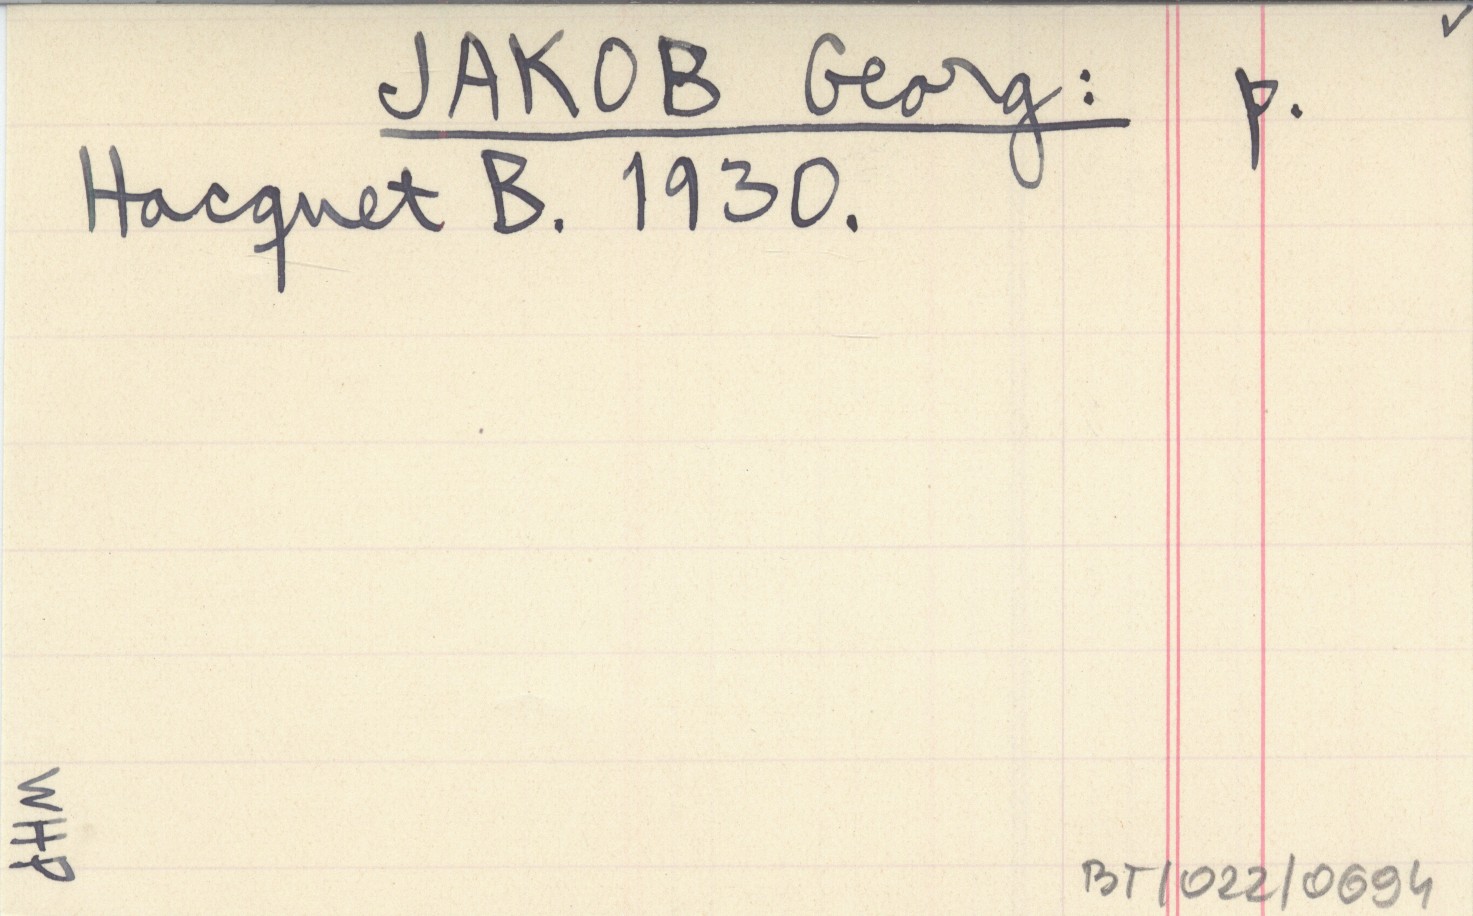 JAKOB Georg: p.
Hacquet B. 1930.
WHP
BT/022/0694